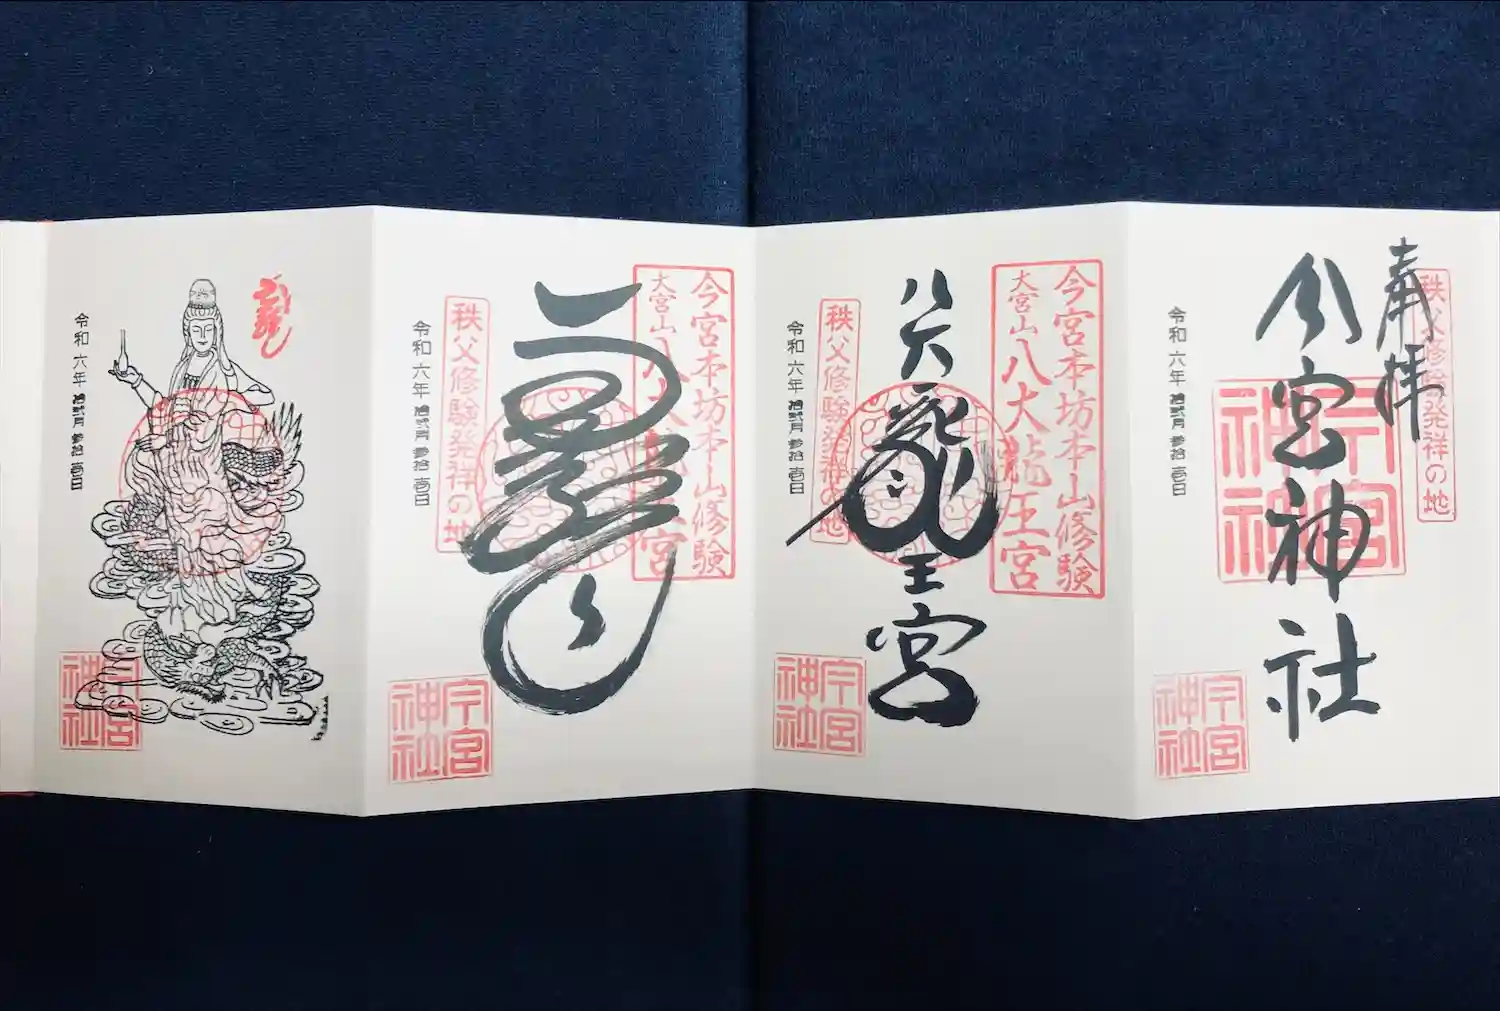 奉拝
秩父修験発祥の地
今宮神社
今宮神社
令和六年拾弐月参拾壱日
今宮神社
今宮本坊本山修験
大宮山八大龍王宮
八大龍王宮
秩父修験発祥の地
令和六年拾弐月参拾壱日
今宮神社
今宮本坊本山修験
大宮山八大龍王宮
秩父修験発祥の地
令和六年拾弐月参拾壱日
今宮神社
令和六年拾弐月参拾壱日
今宮神社